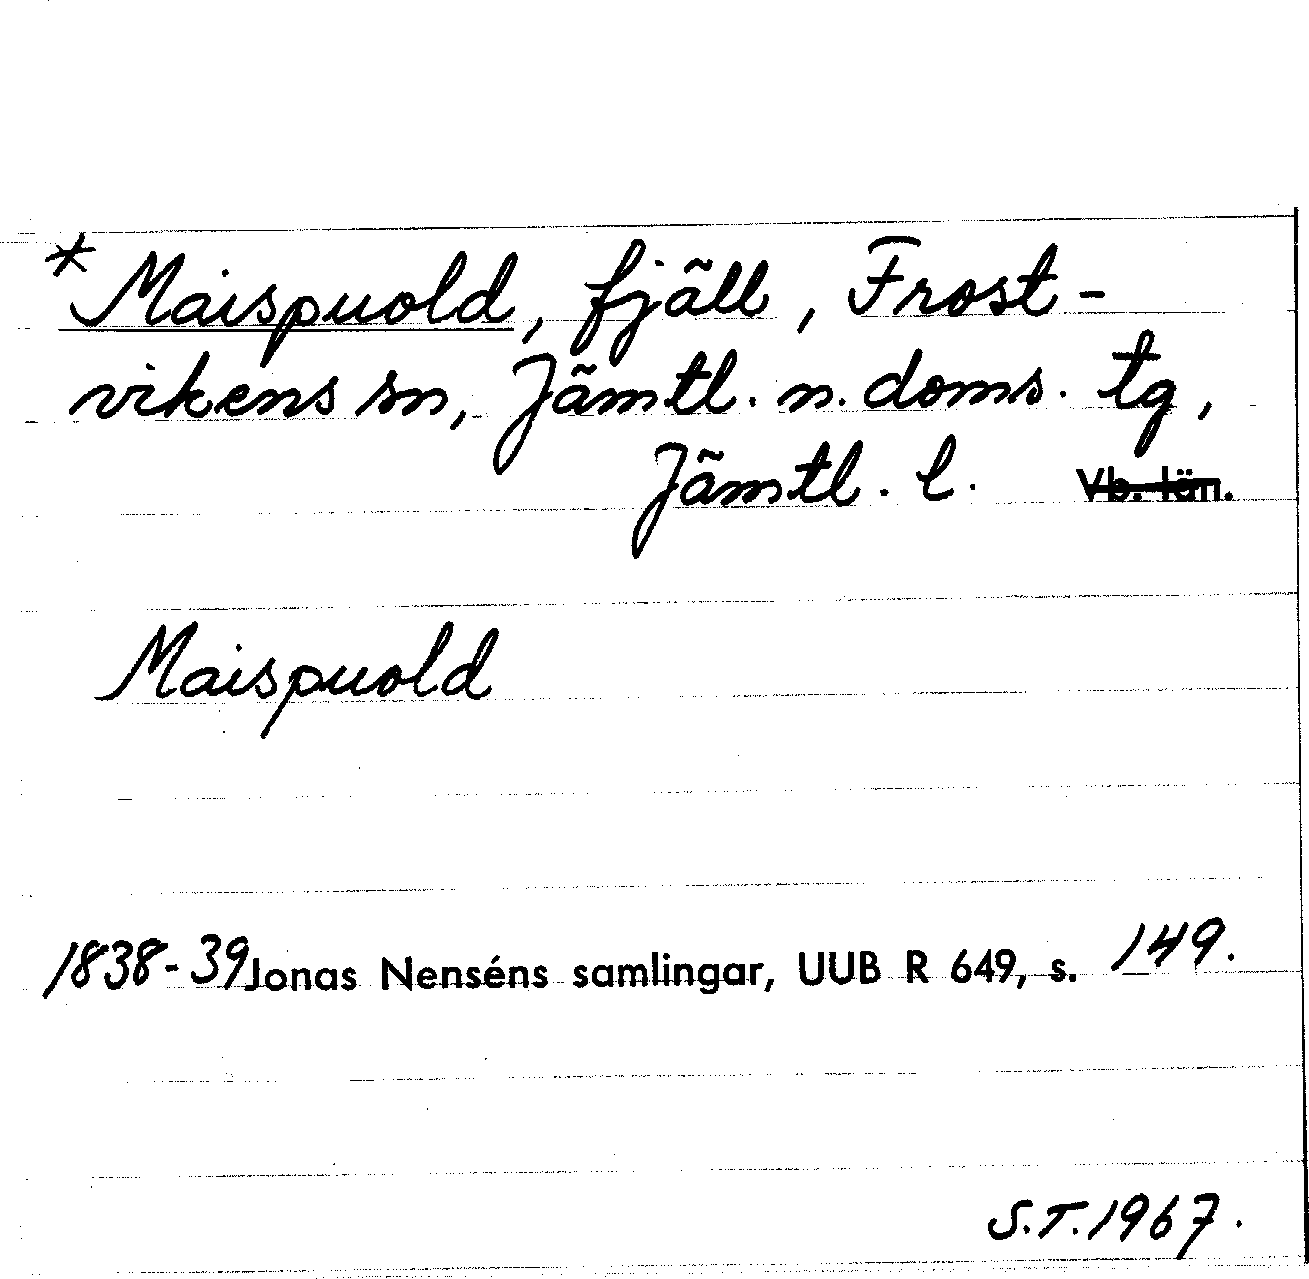 * Maispuold, fjäll, Frost-
vikens sn, Jämtl. n. doms. tg,
Jämtl. l. Vb. län.
Maispuold
1838-39 Jonas Nenséns samlingar, UUB R 649, s. 149.
S.T. 1967.